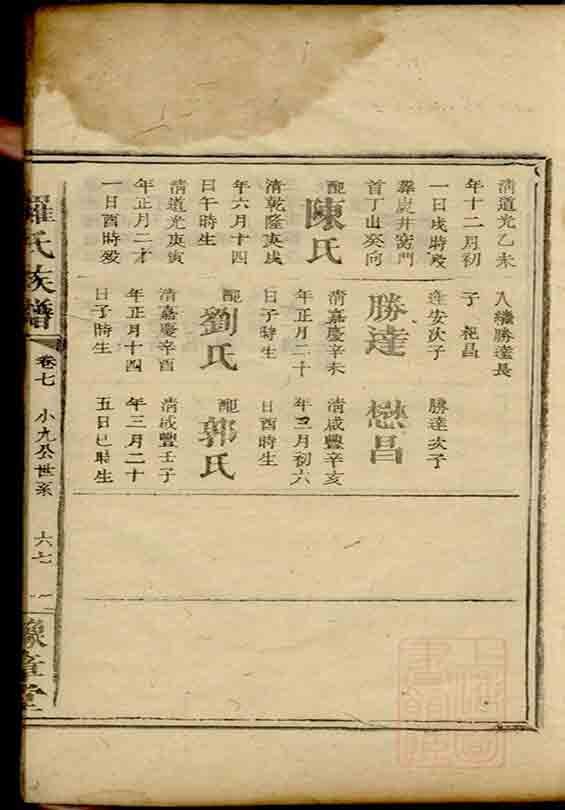 清道光乙未
年十二月初
一日戌時歿
葬虎井窩門
首丁山癸向
配
陳氏
清乾隆庚戌
年六月十四
日午時生
清道光庚寅
年正月二十
一日酉時歿
入繼勝達長
子杞昌
達安次子
勝達
清嘉慶辛未
年正月二十
日子時生
配
劉氏
清嘉慶辛酉
年正月十四
日子時生
勝達次子
懋昌
清咸豐辛亥
年三月初六
日酉時生
配
郭氏
清咸豐壬子
年三月二十
五日巳時生
羅氏族譜
卷七
小九公世系
六七
豫章堂